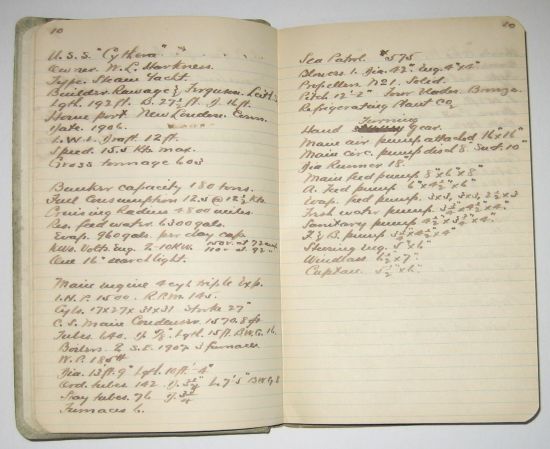 10
U.S.S. "Cythera"
Owner W.L. Harkness.
Type. Steam Yacht.
Builder Ramage & Ferguson. Leith S
Lgth. 192 ft. B. 27½ ft. D. 16 ft.
Home port New London. Conn.
Date 1906.
L.W.L. Draft. 12 ft.
Speed. 15.5 Kts max.
Gross tonnage 603
Bunker capacity 180 tons.
Fuel Consumption 12.5 @ 12½ kts.
Cruising Radius 4800 miles.
Res. feed water. 6300 gals.
Evap. 960 gals. per day cap.
KWs. Volts. Eng. 2-10 KWs.
One 16" searchlight.
Main engine 4 cyl triple Exp.
I.H.P. 1500. R.P.M. 145.
Cyls. 17x27x31x31 Stroke 27"
C.S. Main Condenser 1570.8
Tubes. 640. D. ⅝. Lgth. 15 ft. B.W.G. 16.
Boilers. 2 S.E. 1907 3 furnaces
W.P. 185#
Dia. 13 ft. 9" Lgth. 10 ft. 4"
Ord. tubes 142 L. 7'5" B.W.G. 8
Stay tubes. 76
Furnaces 6.
20
Sea Patrol # 575
Blowers 1. Dia. 42". Eng. 4"x4"
Propellers No 1. Solid.
Pitch 12'2" Four blades. Bronze.
Refrigerating Plant CO2
Turning
Hand gear.
Main air pump attached 16"x16"
Main circ. pump disch 8. Suct. 10"
Dia Runner 18.
Main feed pump 8"x6"x8"
A. Feed pump 6"x4½"x6"
Evap. feed pump. 3x3,
Fresh water pump
Sanitary pump
F. & B. pump
Steering eng. 5"x6"
Windlass 6½"x7"
Capstan 5"x6"